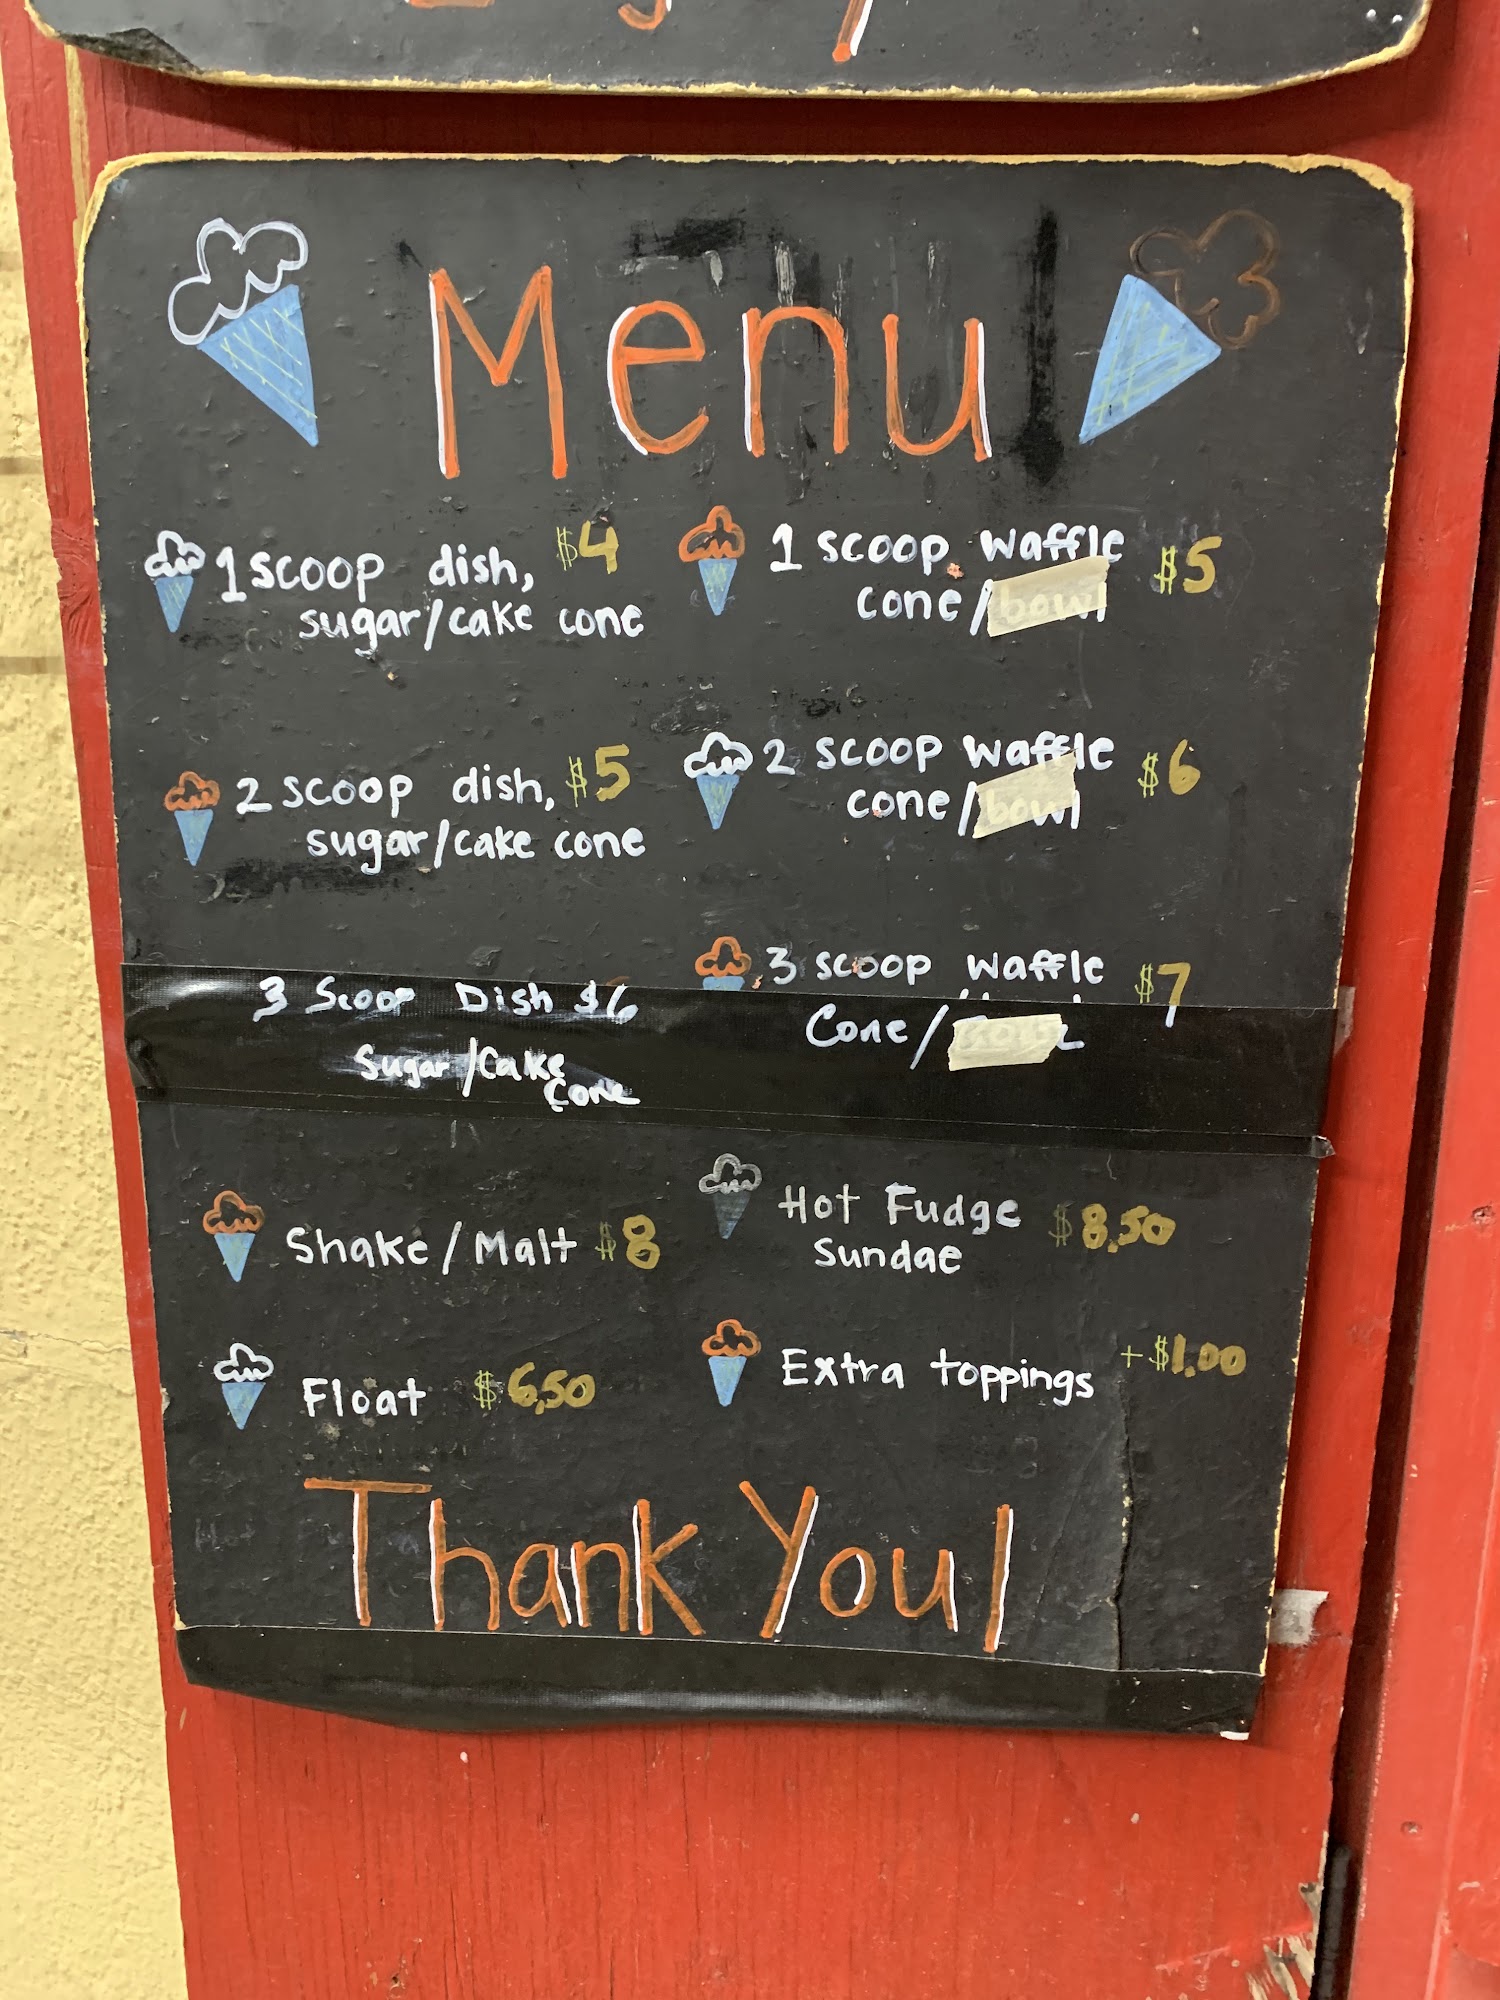 Menu
1 scoop dish, $4
sugar/cake cone
1 scoop waffle $5
cone/bowl
2 scoop dish, $5
sugar/cake cone
2 scoop waffle $6
cone/bowl
3 Scoop Dish $6
Sugar/Cake
Cone
3 scoop waffle $7
Cone/
Shake/Malt $8
Hot Fudge $8.50
Sundae
Float $6.50
Extra toppings +$1.00
Thank You!